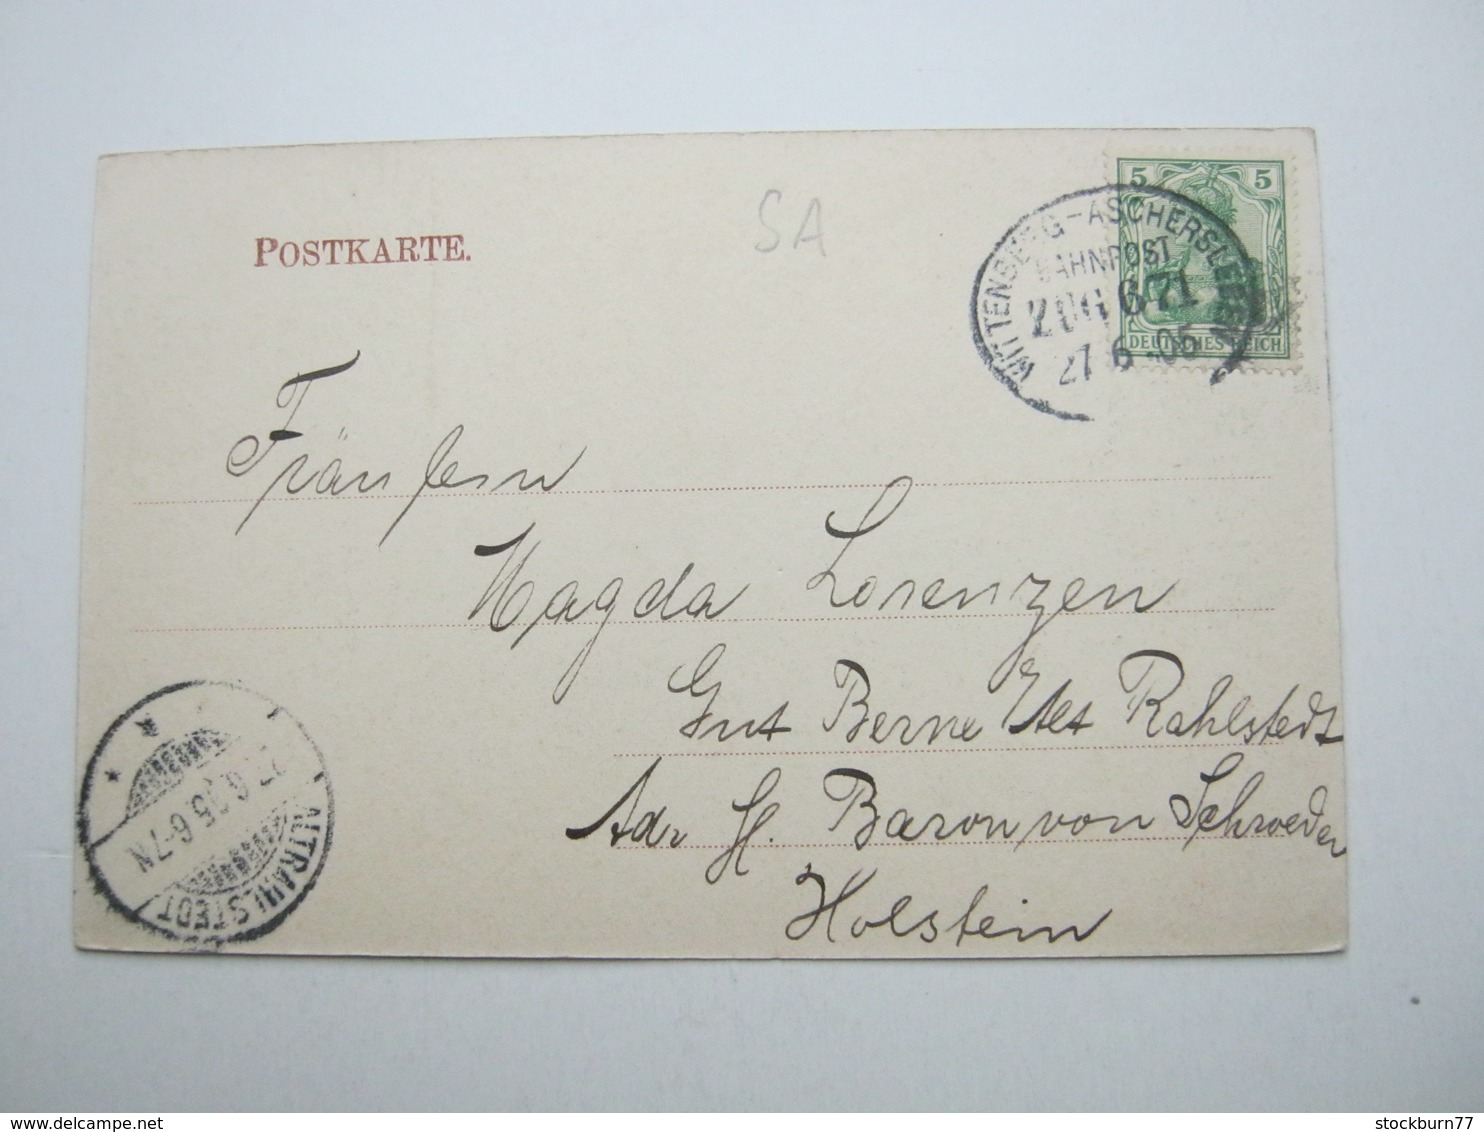 POSTKARTE.
SA
5 5
DEUTSCHES REICH
WITTENBERG-ASCHERSLEBEN
BAHNPOST
ZUG 671
27 6 .05
Fräulein
Magda Lorenzen
Gut Berne Alt Rahlstedt
Adr H. Baron von Schroeder
Holstein
ALTRAHLSTEDT
27.6.05.6-7N
stockburn77